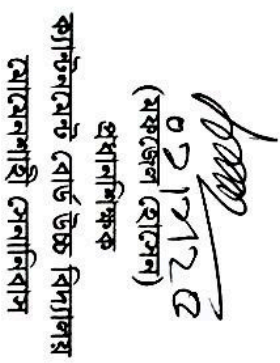 হোসেন)
প্রধানশিক্ষক
ক্যান্টনমেন্ট বোর্ড উচ্চ বিদ্যালয়
মোমেনশাহী সেনানিবাস